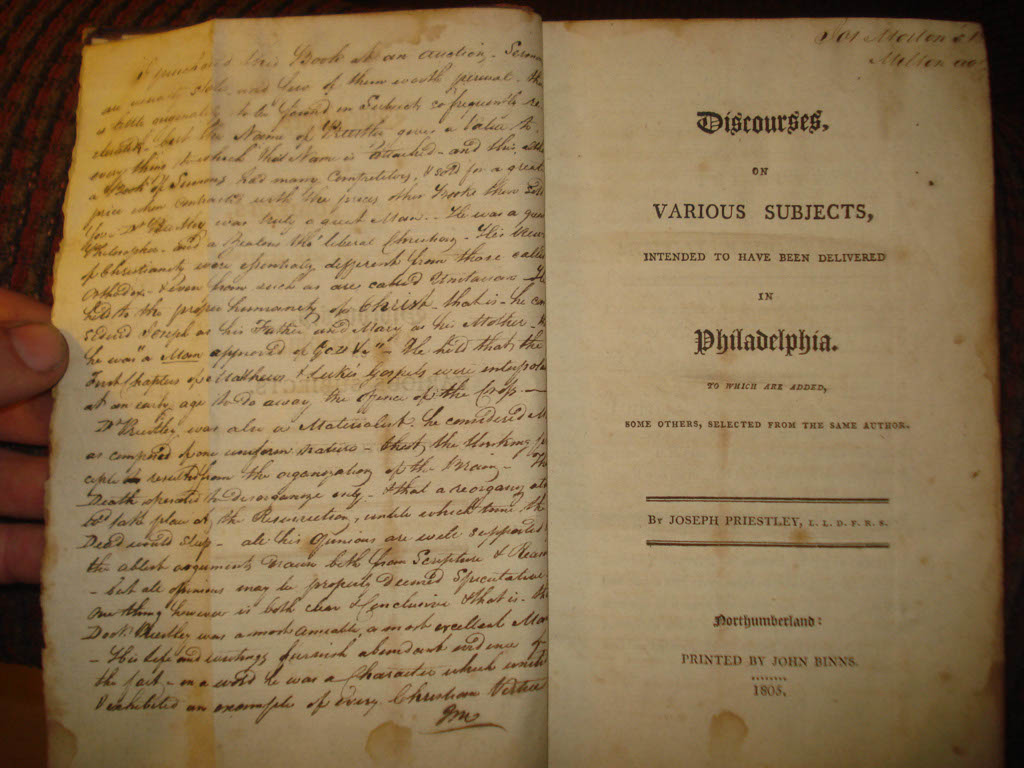 I purchased this Book at an auction - Sermons
are usually stale, and few of them worth perusal - the
is little originality to be found on subjects so frequently re
- but the Name of Priestley gives a value to
every thing to which that Name is attached - and this, altho
a Book of Sermons, had many Competitors, & sold for a great
price when contrasted with the prices other Books then sold
for - Dr Priestley was truly a great Man - He was a great
Philosopher - and a Zealous tho' liberal Christian - His views
of Christianity were essentially different from those called
Orthodox - & even from such as are called Unitarians - He
held to the proper humanity of Christ - that is - he con
sidered Joseph as his Father and Mary as his Mother -
he was "a Man approved of God &c" - He held that the
First Chapters of Matthews & Luke's Gospels were interpola
at an early age to do away the offence of the Cross. -
Dr Priestley was also a Materialist. he considered M
as composed of one uniform nature - that the thinking prin
ciple resulted from the organization of the Brain - That
Death operated to disorganize only - & that a reorganization
would take place at the Resurrection, until which time the
Dead would sleep - all his Opinions are well supported
the ablest arguments drawn both from Scripture & Reason
- but all opinions may be properly deemed Speculative
One thing however is both clear & Conclusive & that is - that
Doctr Priestley was a most amiable, a most excellent Man
- His life and writings furnish abundant evidence of
the fact - in a word he was a Character which united
& exhibited an example of every Christian Virtue
JM
Jos Morton
Milton
Discourses,
ON
VARIOUS SUBJECTS,
INTENDED TO HAVE BEEN DELIVERED
IN
Philadelphia.
TO WHICH ARE ADDED,
SOME OTHERS, SELECTED FROM THE SAME AUTHOR.
BY JOSEPH PRIESTLEY, L. L. D. F. R. S.
Northumberland:
PRINTED BY JOHN BINNS.
1805.